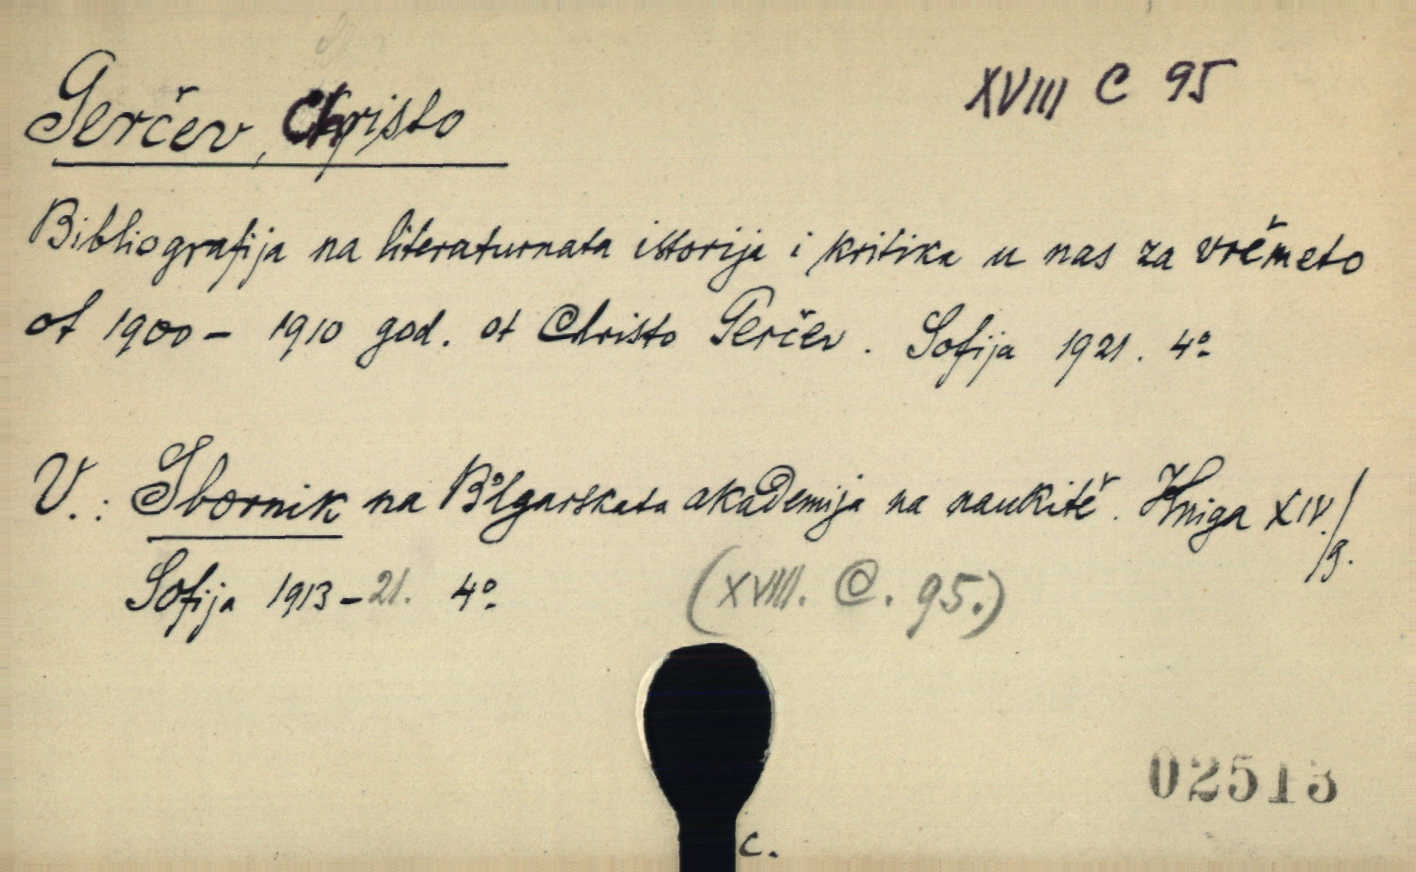 XVIII C 95
Gerčev, Christo
Bibliografija na literaturnata istorija i kritika u nas za vrěmeto
ot 1900 - 1910 god. ot Christo Gerčev. Sofija 1921. 4º
V.: Sbornik na Bŭlgarskata akademija na naukitě. Kniga XIV./9.
Sofija 1913-21. 4º (XVIII. C. 95.)
02513
c.